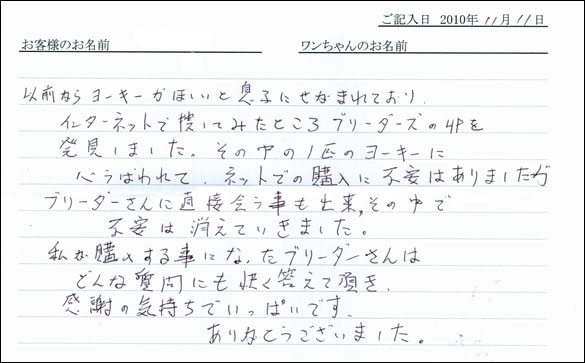 ご記入日 2010年 11月 11日
お客様のお名前 ワンちゃんのお名前
以前なら ヨーキーがほしいと息子にせなまれており、
インターネットで捜してみたところ ブリーダーズのHPを
発見しました。その中の1匹のヨーキーに
心うばわれて、ネットでの購入に不安はありましたが
ブリーダーさんに直接会う事も出来、その中で
不安は消えていきました。
私が購入する事になったブリーダーさんは
どんな質問にも快く答えて頂き、
感謝の気持ちでいっぱいです。
ありがとうございました。